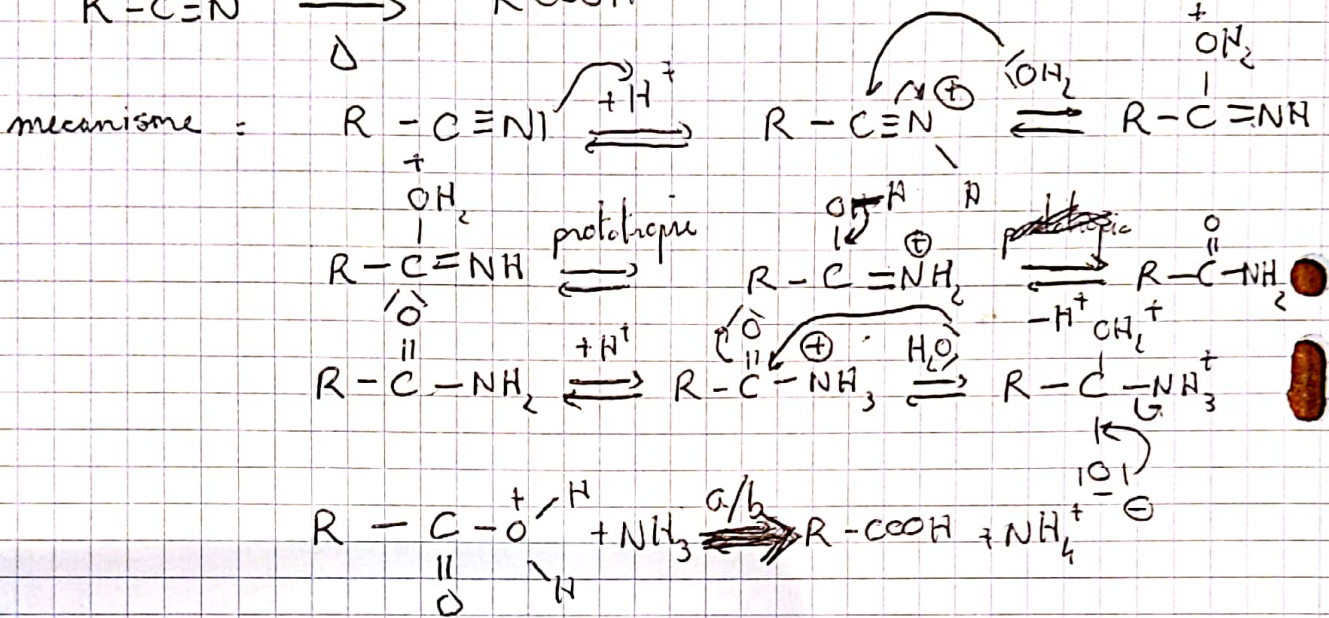 R-C≡N → R COOH
Δ
mecanisme : R - C≡N| +H⁺ ⇌ R - C≡N⊕ - H |OH₂ ⇌ R-C(-OH₂⁺)=NH
R-C(-OH₂⁺)=NH prototropie ⇌ R-C(-O-H)=NH₂⊕ ⇌ -H⁺ R-C(=O)-NH₂
R-C(=O)-NH₂ +H⁺ ⇌ R-C(=O)-NH₃⊕ H₂O ⇌ R-C(-OH₂⁺)(-O⊖)-NH₃⁺
R-C(=O)-O⁺(H)(H) + NH₃ a/b → R-COOH + NH₄⁺